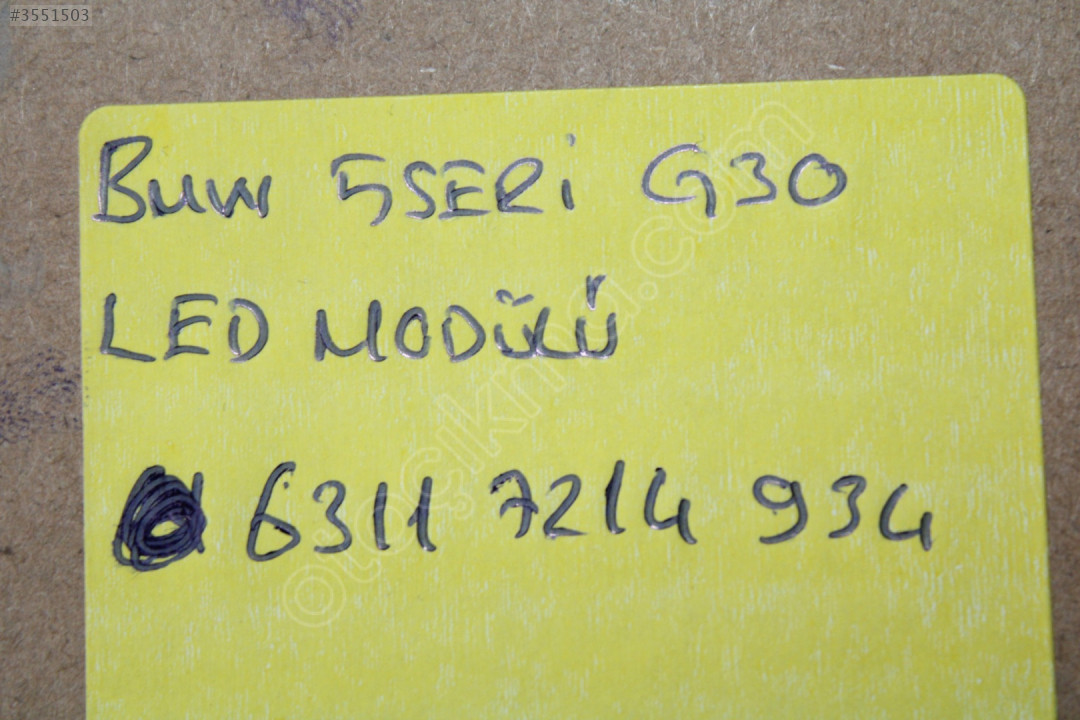 #3551503
BMW 5SERİ G30
LED MODÜLÜ
6311 7214 934
otocikma.com